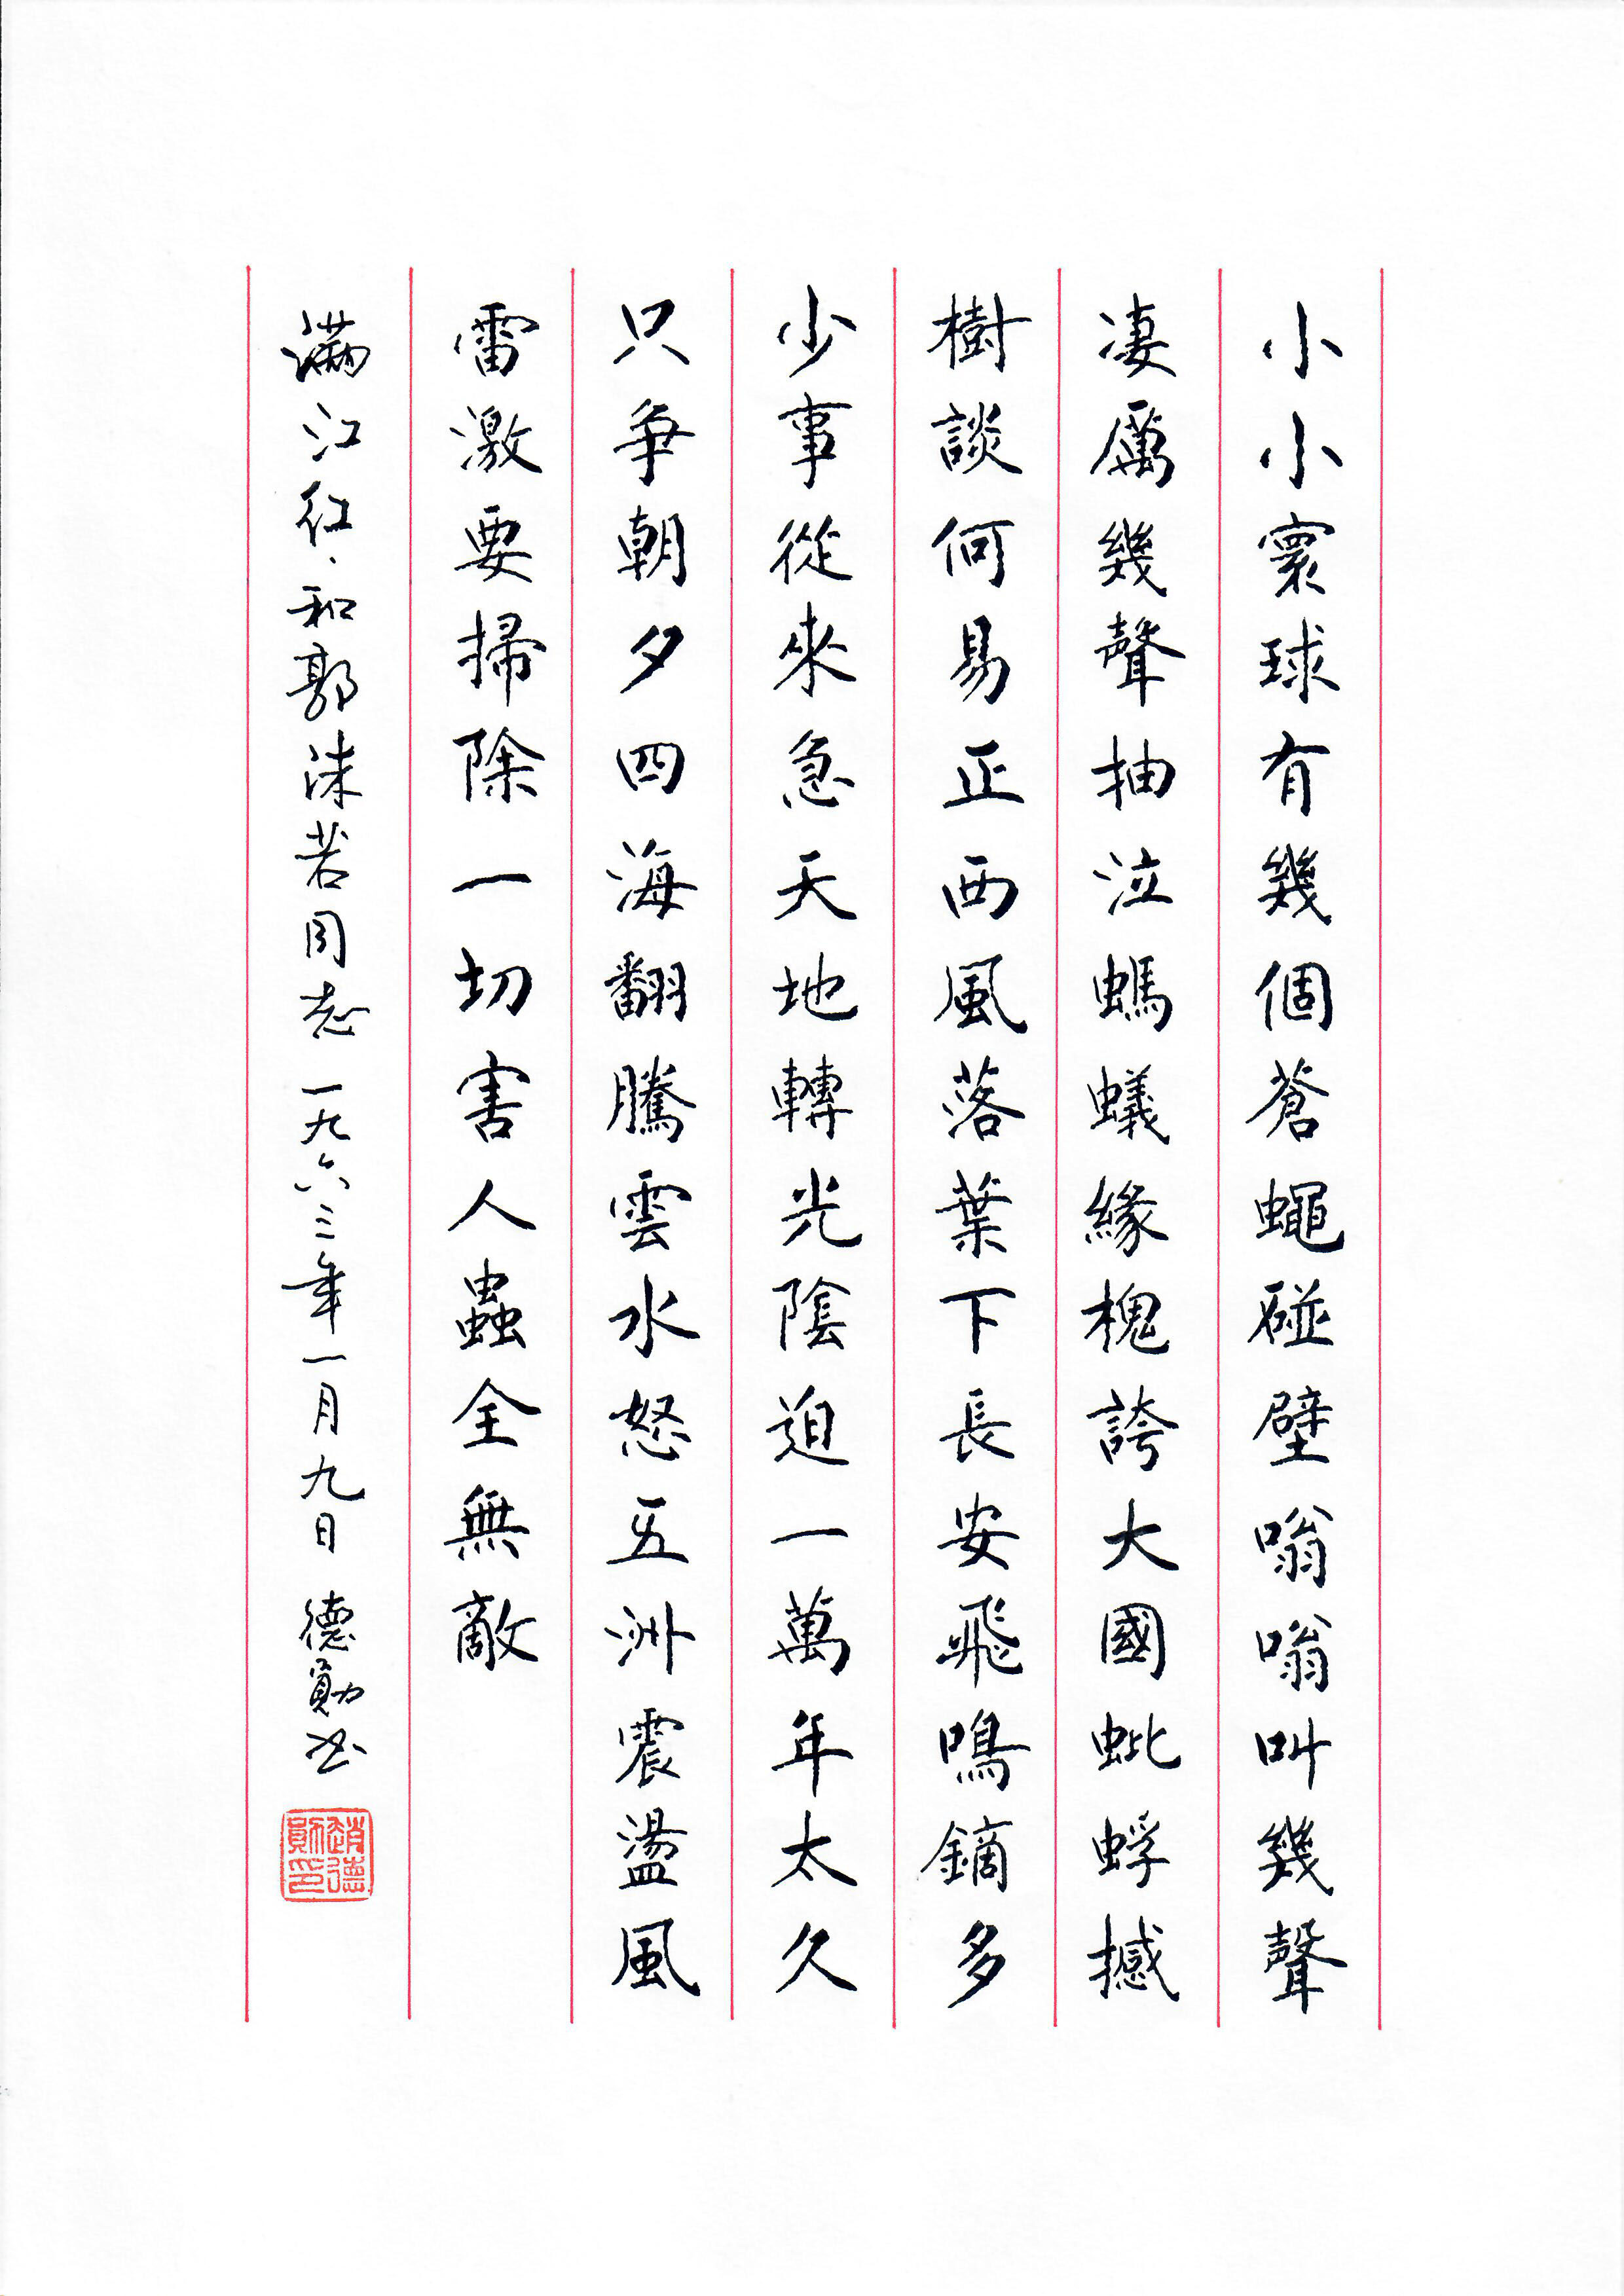 小小寰球有幾個蒼蠅碰壁嗡嗡叫幾聲
凄厲幾聲抽泣螞蟻緣槐誇大國蚍蜉撼
樹談何易正西風落葉下長安飛鳴鏑多
少事從來急天地轉光陰迫一萬年太久
只爭朝夕四海翻騰雲水怒五洲震盪風
雷激要掃除一切害人蟲全無敵
滿江红、和郭沫若同志 一九六三年一月九日 德勛书
趙德勛印